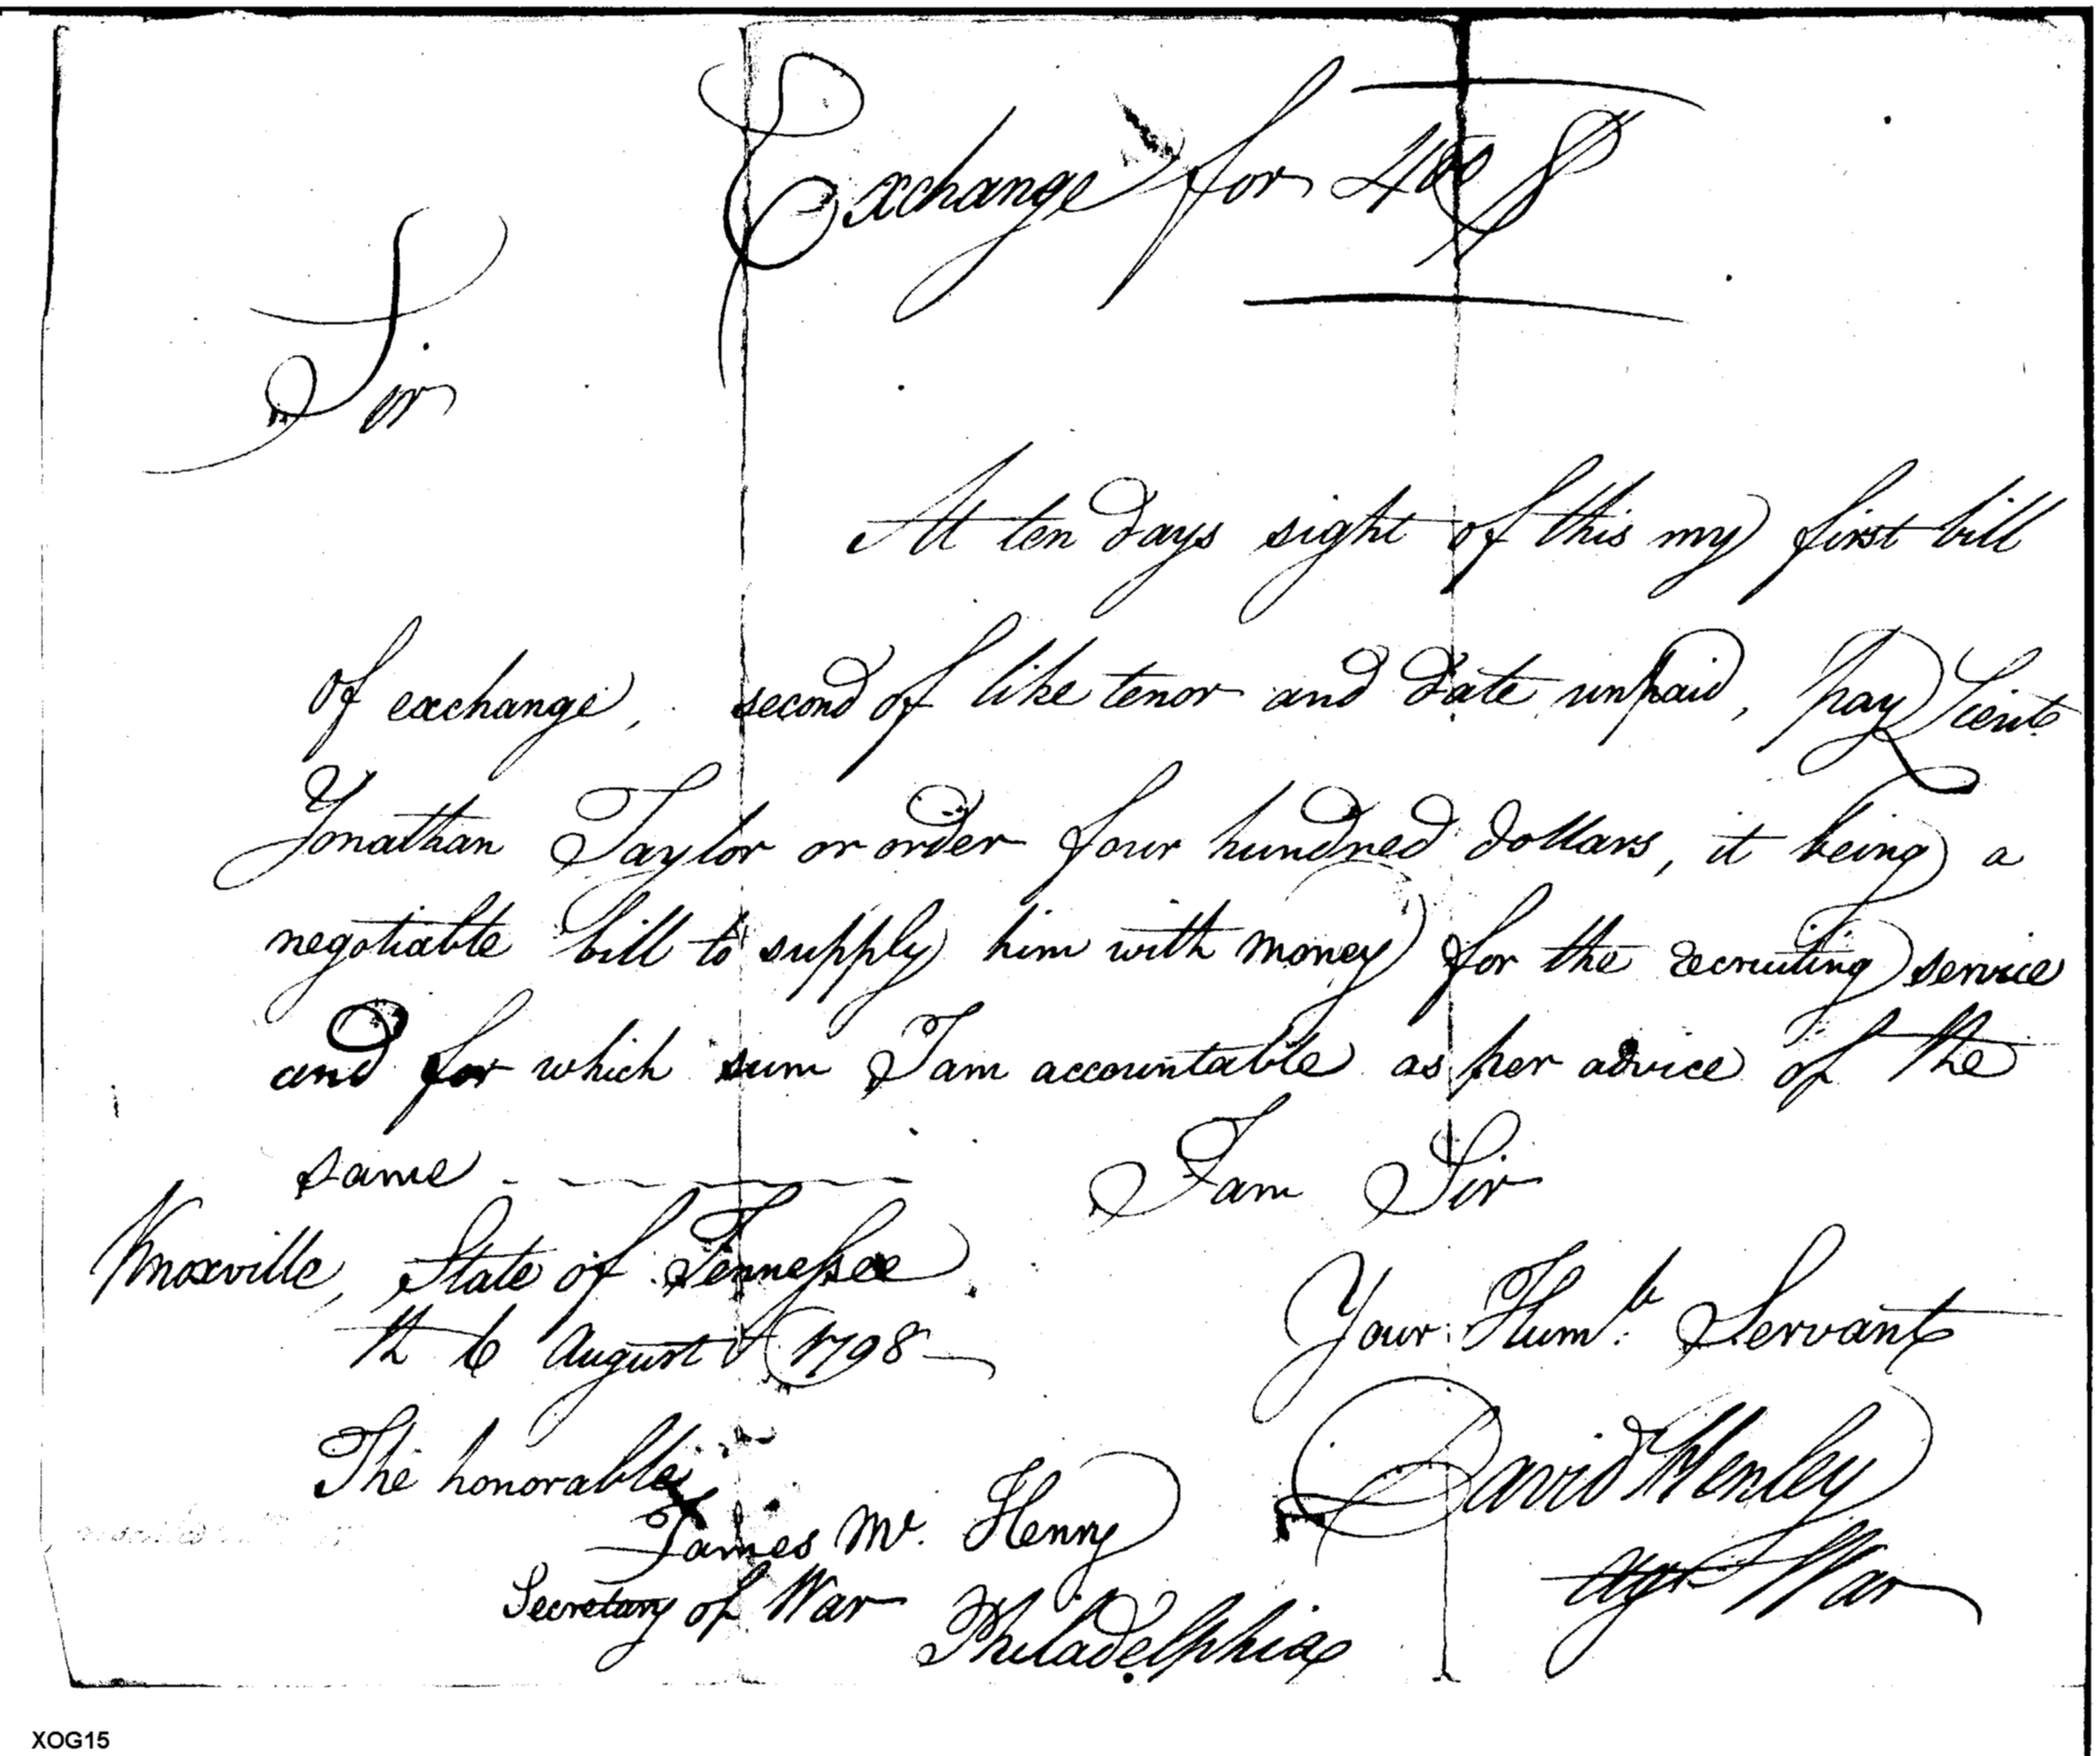 Exchange for 400 $
Sir
At ten days sight of this my first bill
of exchange, second of like tenor and date unpaid, pay Lieut.
Jonathan Taylor or order four hundred dollars, it being a
negotiable bill to supply him with money for the recruiting service
and for which sum I am accountable as per advice of the
same - - - - - I am Sir
Knoxville, State of Tennessee.
6 August 1798
Your Humb. Servant
The honorable
James Mc. Henry
Secretary of War
Philadelphia
David Henley
Agt War
XOG15